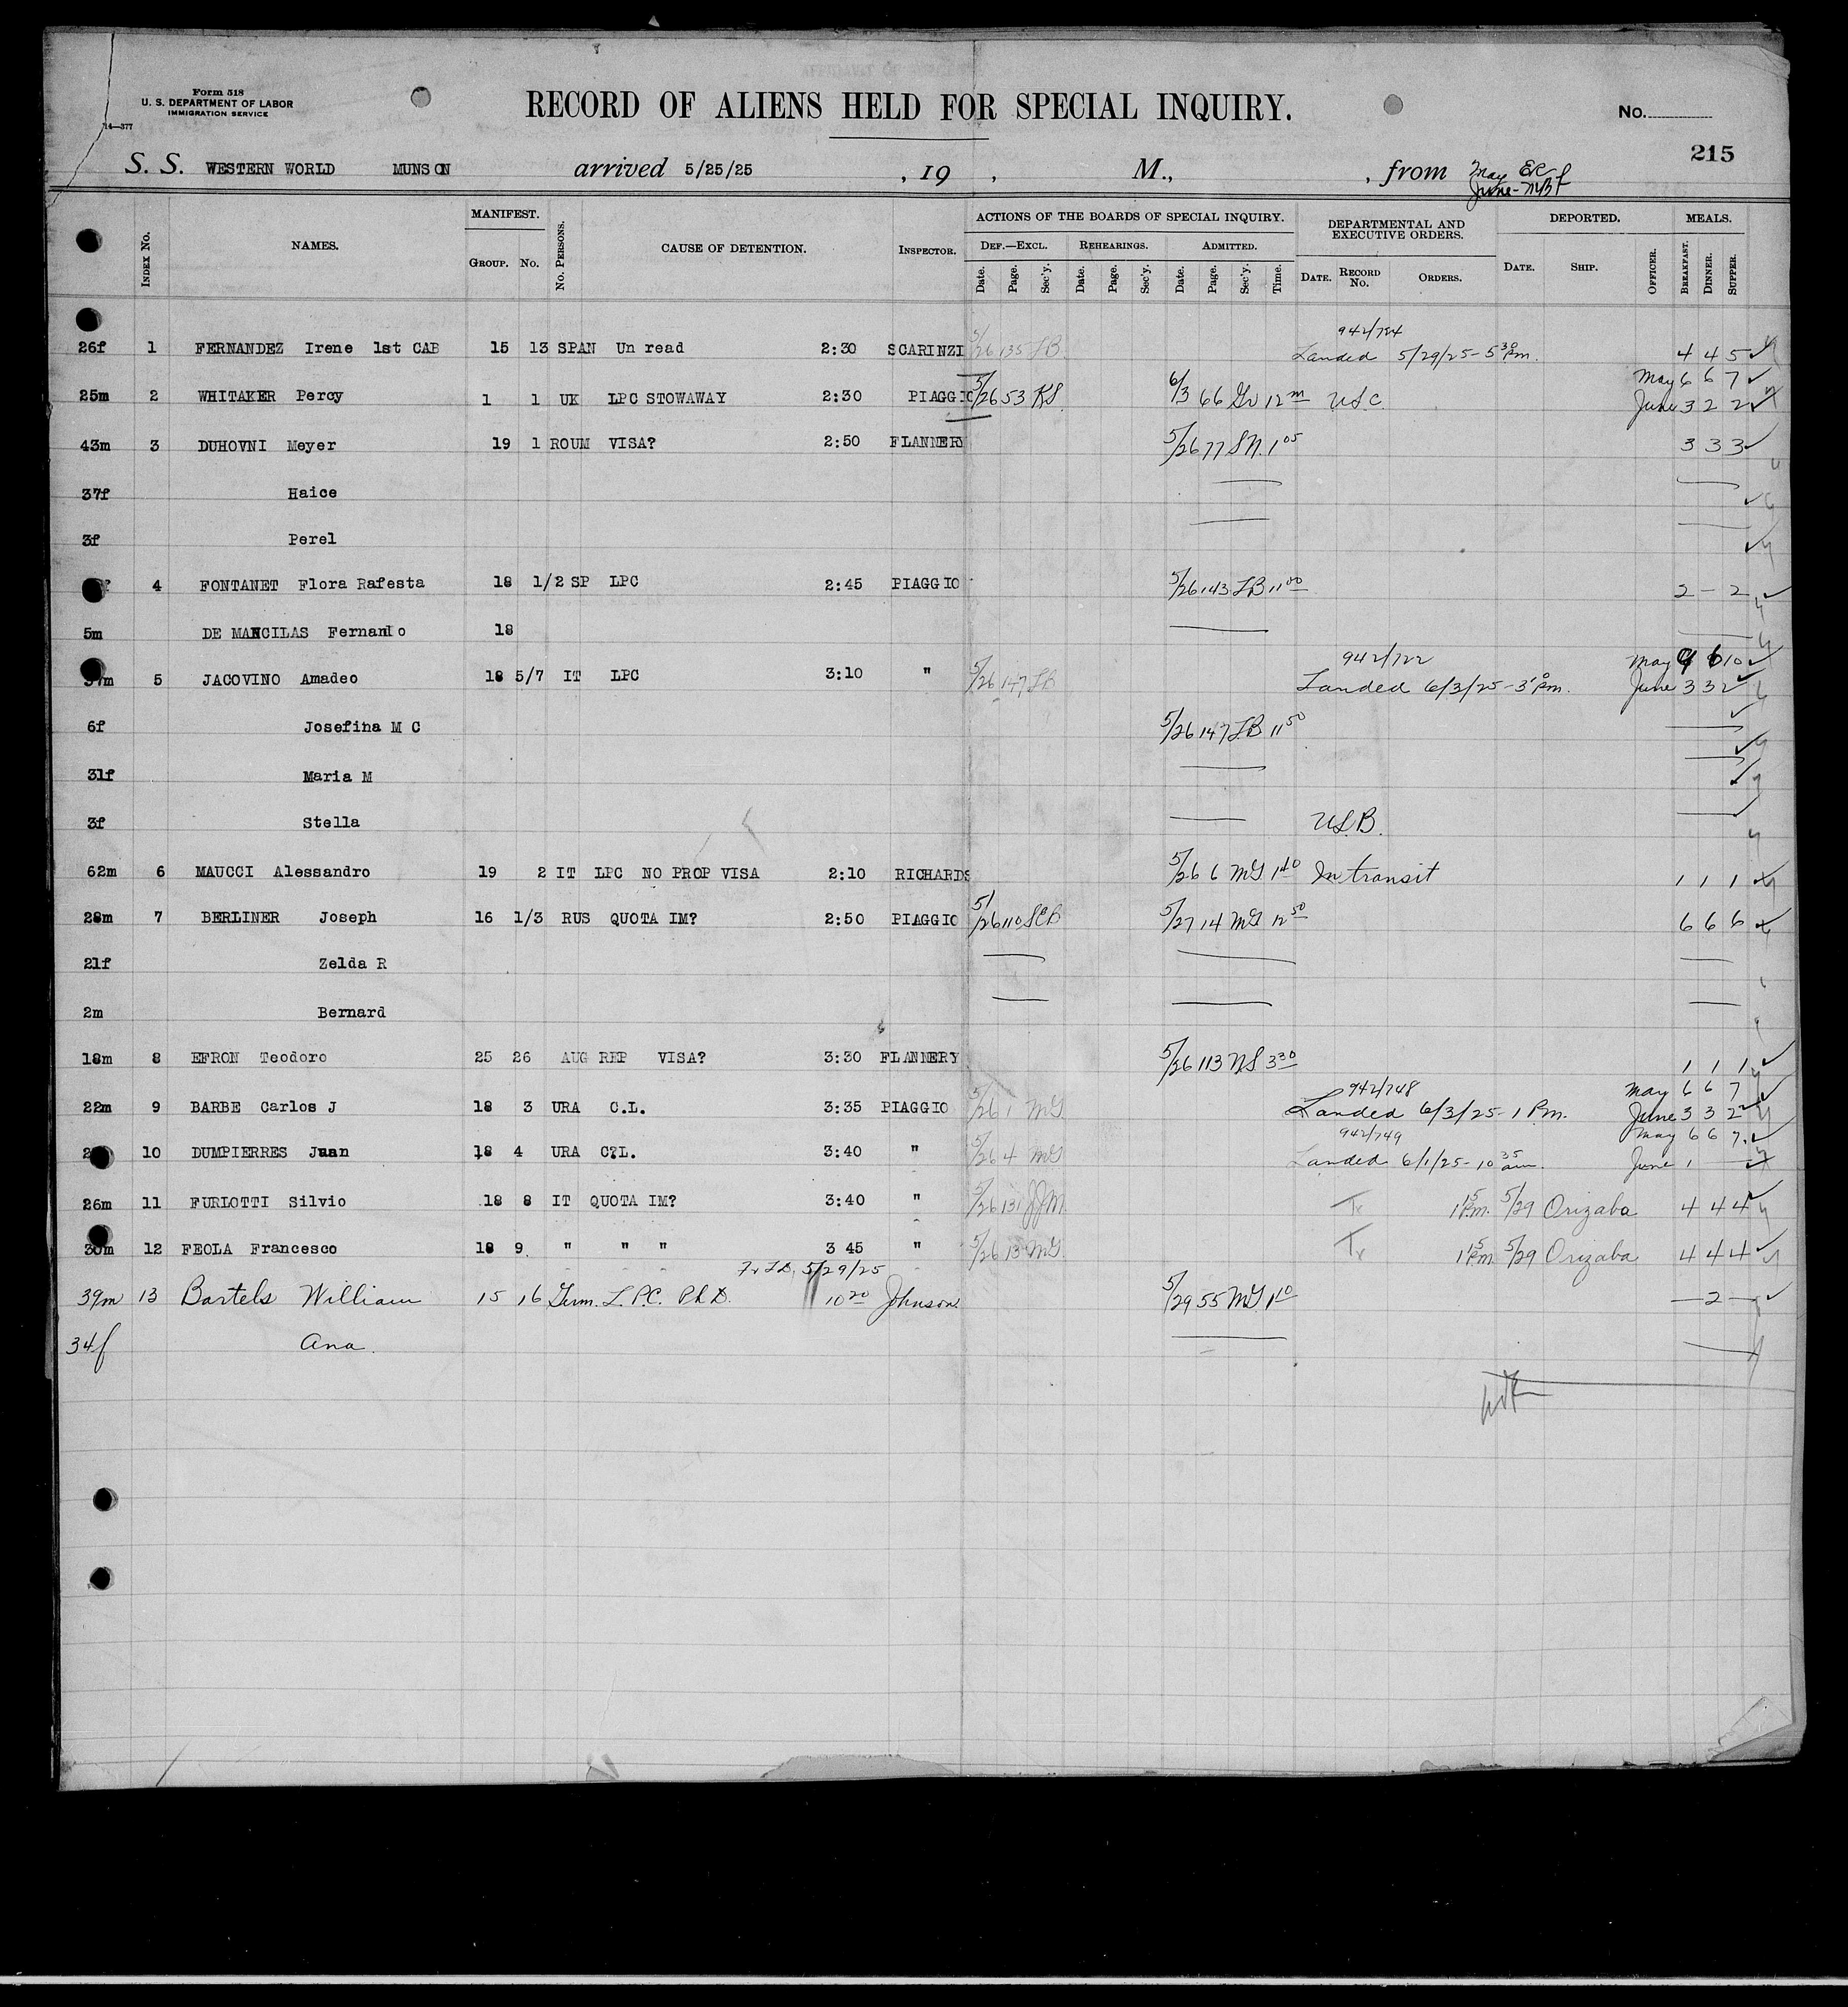 Form 518
U. S. DEPARTMENT OF LABOR
IMMIGRATION SERVICE
14—377
RECORD OF ALIENS HELD FOR SPECIAL INQUIRY.
No.
215
S. S. WESTERN WORLD MUNSON arrived 5/25/25 , 19 , M., , from May ER
June-
INDEX No. NAMES. MANIFEST. GROUP. No. No. PERSONS. CAUSE OF DETENTION. INSPECTOR. ACTIONS OF THE BOARDS OF SPECIAL INQUIRY. DEF.—EXCL. Date. Page. Sec'y. REHEARINGS. Date. Page. Sec'y. ADMITTED. Date. Page. Sec'y. Time. DEPARTMENTAL AND EXECUTIVE ORDERS. DATE. RECORD No. ORDERS. DEPORTED. DATE. SHIP. OFFICER. MEALS. BREAKFAST. DINNER. SUPPER.
26f 1 FERNANDEZ Irene 1st CAB 15 13 SPAN Un read 2:30 SCARINZI 5/26 135 LB 942/784 Landed 5/29/25-5 30 Pm. 4 4 5
25m 2 WHITAKER Percy 1 1 UK LPC STOWAWAY 2:30 PIAGGIO 5/26 53 KS 6/3 66 Gv 12 m USC May 6 6 7
June 3 2 2
43m 3 DUHOVNI Meyer 19 1 ROUM VISA? 2:50 FLANNERY 5/26 77 SN. 1 05 3 3 3
37f Haice
3f Perel
4 FONTANET Flora Rafesta 18 1/2 SP LPC 2:45 PIAGGIO 5/26 143 LB 11 00 2 - 2
5m DE MANCILAS Fernando 18
37m 5 JACOVINO Amadeo 18 5/7 IT LPC 3:10 " 5/26 147 LB 942/722 Landed 6/3/25-3 Pm. May 9 6 10
June 3 3 2
6f Josefina M C 5/26 147 LB 11 50
31f Maria M
3f Stella USB.
62m 6 MAUCCI Alessandro 19 2 IT LPC NO PROP VISA 2:10 RICHARDS 5/26 6 MG 1 40 In transit 1 1 1
28m 7 BERLINER Joseph 16 1/3 RUS QUOTA IM? 2:50 PIAGGIO 5/26 110 SEB 5/27 14 MG 12 50 6 6 6
21f Zelda R
2m Bernard
18m 8 EFRON Teodoro 25 26 AUG REP VISA? 3:30 FLANNERY 5/26 113 NS 3 30 1 1 1
22m 9 BARBE Carlos J 18 3 URA C.L. 3:35 PIAGGIO 5/26 1 MG 942/748 Landed 6/3/25-1 Pm. May 6 6 7
June 3 3 2
10 DUMPIERRES Juan 18 4 URA C?L. 3:40 " 5/26 4 MG 942/749 Landed 6/1/25-10 35 am. May 6 6 7
June 1
26m 11 FURLOTTI Silvio 18 8 IT QUOTA IM? 3:40 " 5/26 131 JJM Tr 1 15 Pm. 5/29 Orizaba 4 4 4
30m 12 FEOLA Francesco 18 9 " " " 3 45 " 5/26 13 MG Tr 1 15 Pm 5/29 Orizaba 4 4 4
Fr T.D. 5/29/25
39m 13 Bartels William 15 16 Germ. L.P.C. Ph.D. 10 20 Johnson 5/29 55 MG 1 10 — 2 —
34f Ana